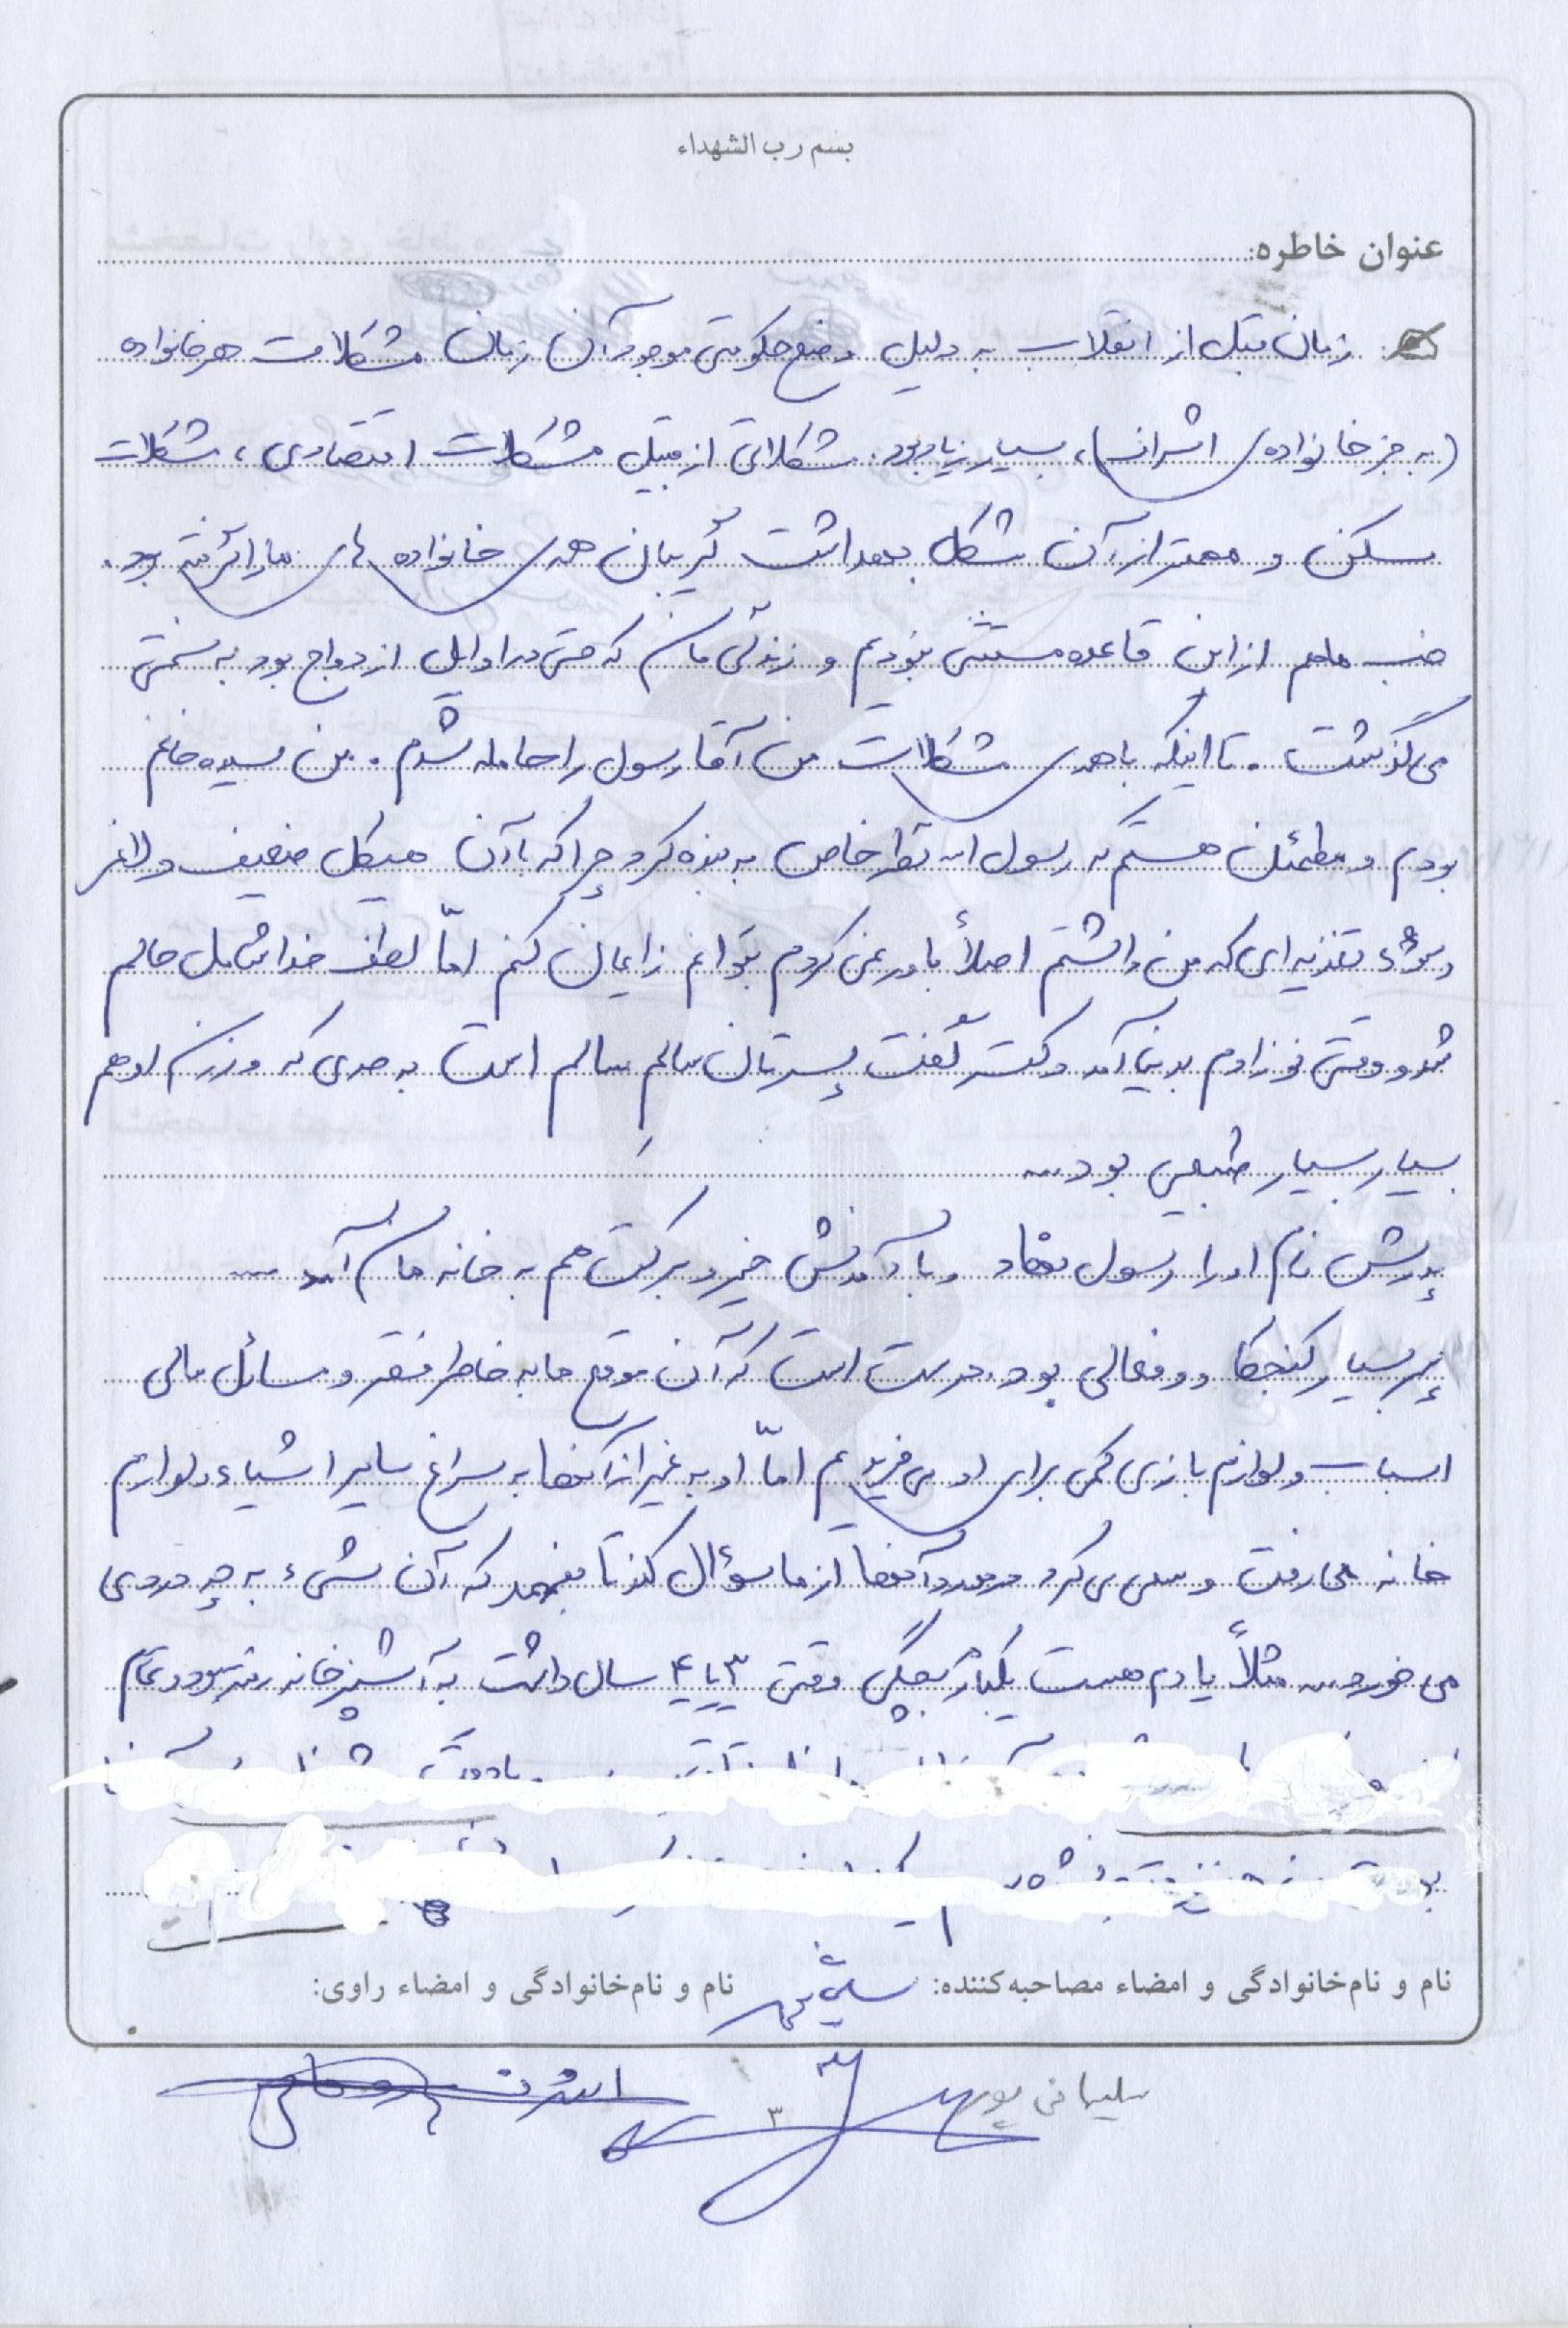 بسم رب الشهداء
عنوان خاطره:
زمان قبل از انقلاب به دلیل وضع حکومتی موجود آن زمان مشکلات هر خانواده
(به جز خانواده‌ی اشراف)، بسیار زیاد بود. مشکلاتی از قبیل مشکلات اقتصادی، مشکلات
مسکن و مهمتر از آن مشکل بهداشت گریبان همه‌ی خانواده های ما را گرفته بود.
خب ما هم از این قاعده مستثنی نبودیم و زندگی مان که حتی در اوایل ازدواج بود به سختی
می گذشت. تا اینکه با همه‌ی مشکلات من آقا رسول را حامله شدم. من سیده خانم
بودم و مطمئن هستم که رسول الله نظر خاص به بنده کرد چرا که با آن هیکل ضعیف و لاغر
و سوء تغذیه ای که من داشتم اصلاً باور نمی کردم بتوانم زایمان کنم امّا لطف خدا شامل حالم
شد و وقتی نوزادم بدنیا آمد دکتر گفت پسرتان سالمِ سالم است به حدی که وزن او هم
بسیار بسیار طبیعی بود...
پدرش نام او را رسول نهاد و با آمدنش خیر و برکت هم به خانه مان آمد ...
پسر بسیار کنجکاو و فعالی بود. درست است که آن موقع ما به خاطر فقر و مسائل مالی
اسباب و لوازم بازی کمی برای او می خریدیم امّا او به غیر از آنها به سراغ سایر اشیاء و لوازم
خانه می رفت و سعی می کرد در مورد آنها از ما سؤال کند تا بفهمد که آن شیء به چه دردی
می خورد... مثلاً یادم هست یکبار بچگی وقتی ۳ یا ۴ سال داشت به آشپزخانه رفته بود و تمام
نام و نام‌خانوادگی و امضاء مصاحبه‌کننده: نام و نام‌خانوادگی و امضاء راوی:
سلیمانی پور
۳